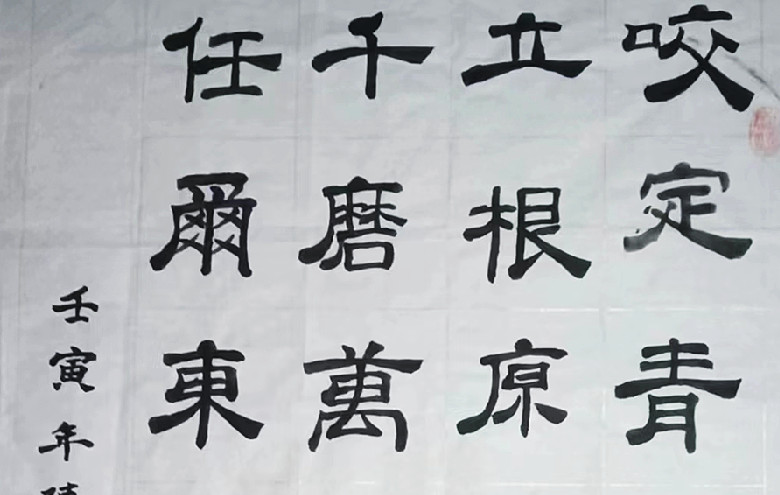 咬定青
立根原
千磨萬
任爾東
壬寅年